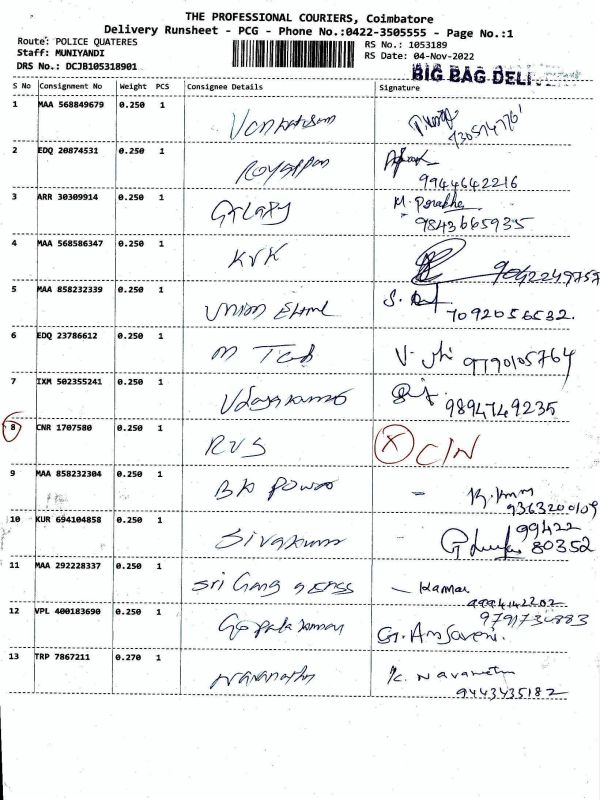 THE PROFESSIONAL COURIERS, Coimbatore
Delivery Runsheet - PCG - Phone No.:0422-3505555 - Page No.:1
Route: POLICE QUATERES
RS No.: 1053189
Staff: MUNIYANDI
RS Date: 04-Nov-2022
DRS No.: DCJB105318901
BIG BAG DELI
S No Consignment No Weight PCS Consignee Details Signature
1 MAA 568849679 0.250 1
2 EDQ 20874531 0.250 1 Royappan
9944642216
3 ARR 30309914 0.250 1 Galaxy M.
9843665935
4 MAA 568586347 0.250 1 KVK
9042249757
5 MAA 858232339 0.250 1 Union S.
7092056532.
6 EDQ 23786612 0.250 1 M V. 9790105764
7 IXM 502355241 0.250 1 Udayakumar
9894749235
8 CNR 1707580 0.250 1 RVS X C/N
9 MAA 858232304 0.250 1 -
9363200109
10 KUR 694104858 0.250 1 Sivakumar 99422
80352
11 MAA 292228337 0.250 1 Sri Kamar
12 VPL 400183690 0.250 1 9791734883
13 TRP 7867211 0.270 1
9443435182